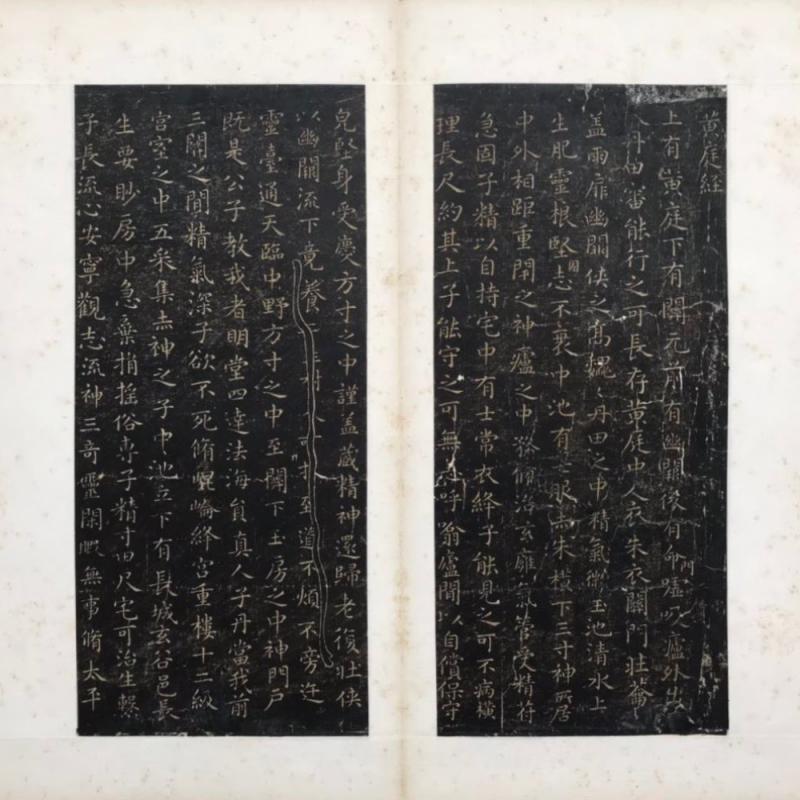 黄庭經
上有黄庭下有關元前有幽關後有命門噓吸廬外出
入丹田審能行之可長存黄庭中人衣朱衣關門壯籥
蓋兩扉幽關俠之高巍〻丹田之中精氣微玉池清水上
生肥靈根堅固志不衰中池有士服赤朱橫下三寸神所居
中外相距重閉之神廬之中務脩治玄㢉氣管受精符
急固子精以自持宅中有士常衣絳子能見之可不病橫
理長尺約其上子能守之可無恙呼翕廬間以自償保守
完堅身受慶方寸之中謹蓋藏精神還歸老復壯俠
以幽關流下竟養子玉樹令可杖至道不煩不旁迕
靈臺通天臨中野方寸之中至關下玉房之中神門戶
既是公子教我者明堂四達法海員真人子丹當我前
三關之間精氣深子欲不死脩崐崘絳宮重樓十二級
宮室之中五采集赤神之子中池立下有長城玄谷邑長
生要眇房中急棄捐搖俗專子精寸田尺宅可治生繫
子長流心安寧觀志流神三奇靈閑暇無事脩太平